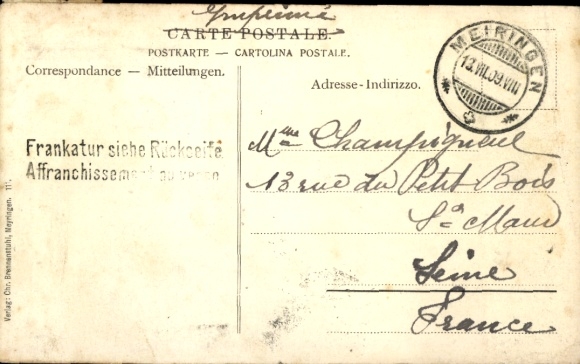 Imprimé
CARTE POSTALE.
POSTKARTE — CARTOLINA POSTALE.
Correspondance — Mitteilungen.
Adresse-Indirizzo.
MEIRINGEN
13.VII.09.VIII
Frankatur siehe Rückseite.
Affranchissement au verso
Mme Champigneul
13 rue du Petit Bois
St Maur
Seine
France
Verlag: Chr. Brennenstuhl, Meyringen. 111.